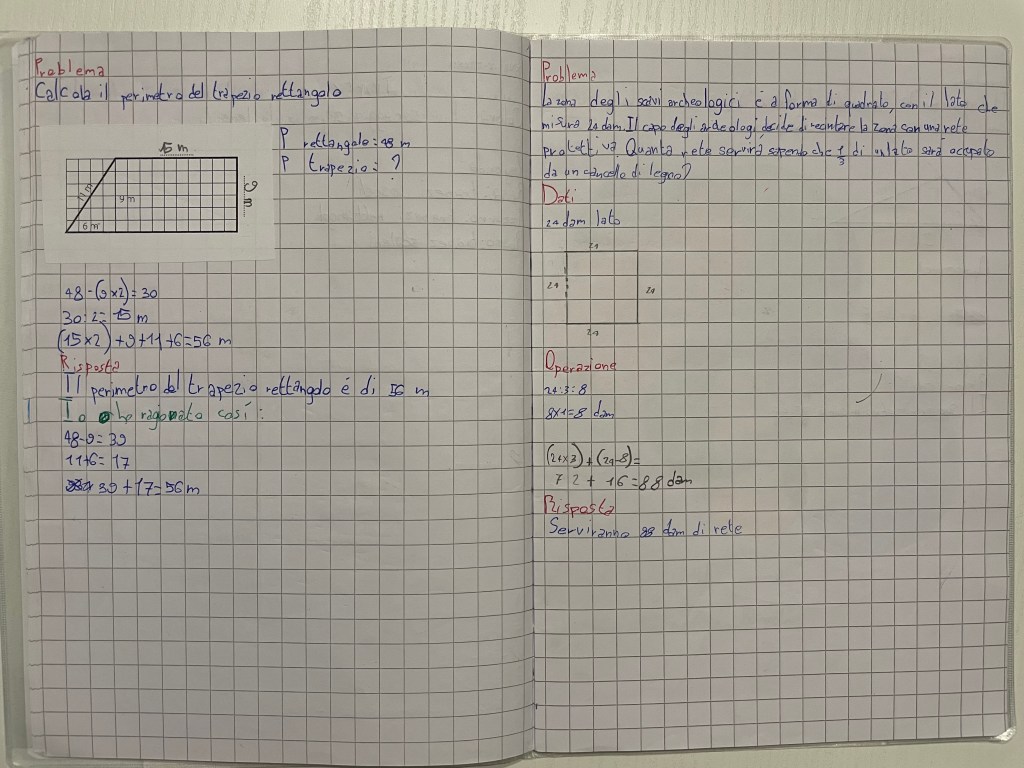 Problema
Calcola il perimetro del trapezio rettangolo
15 m
11 m
9 m
6 m
9 m
P rettangolo = 48 m
P trapezio = ?
48-(9×2)=30
30:2=15 m
(15×2)+9+11+6=56 m
Risposta
Il perimetro del trapezio rettangolo é di 56 m
Io ho ragionato cosí:
48-9=39
11+6=17
39+17=56 m
Problema
La zona degli scavi archeologici è a forma di quadrato, con il lato che
misura 24 dam. Il capo degli archeologi decide di recintare la zona con una rete
protettiva Quanta rete servirà sapendo che 1/3 di un lato sarà occupato
da un cancello di legno?
Dati
24 dam lato
24
24
24
24
Operazione
24:3=8
8×1=8 dam
(24×3)+(24-8)=
72+16=88 dam
Risposta
Serviranno 88 dam di rete